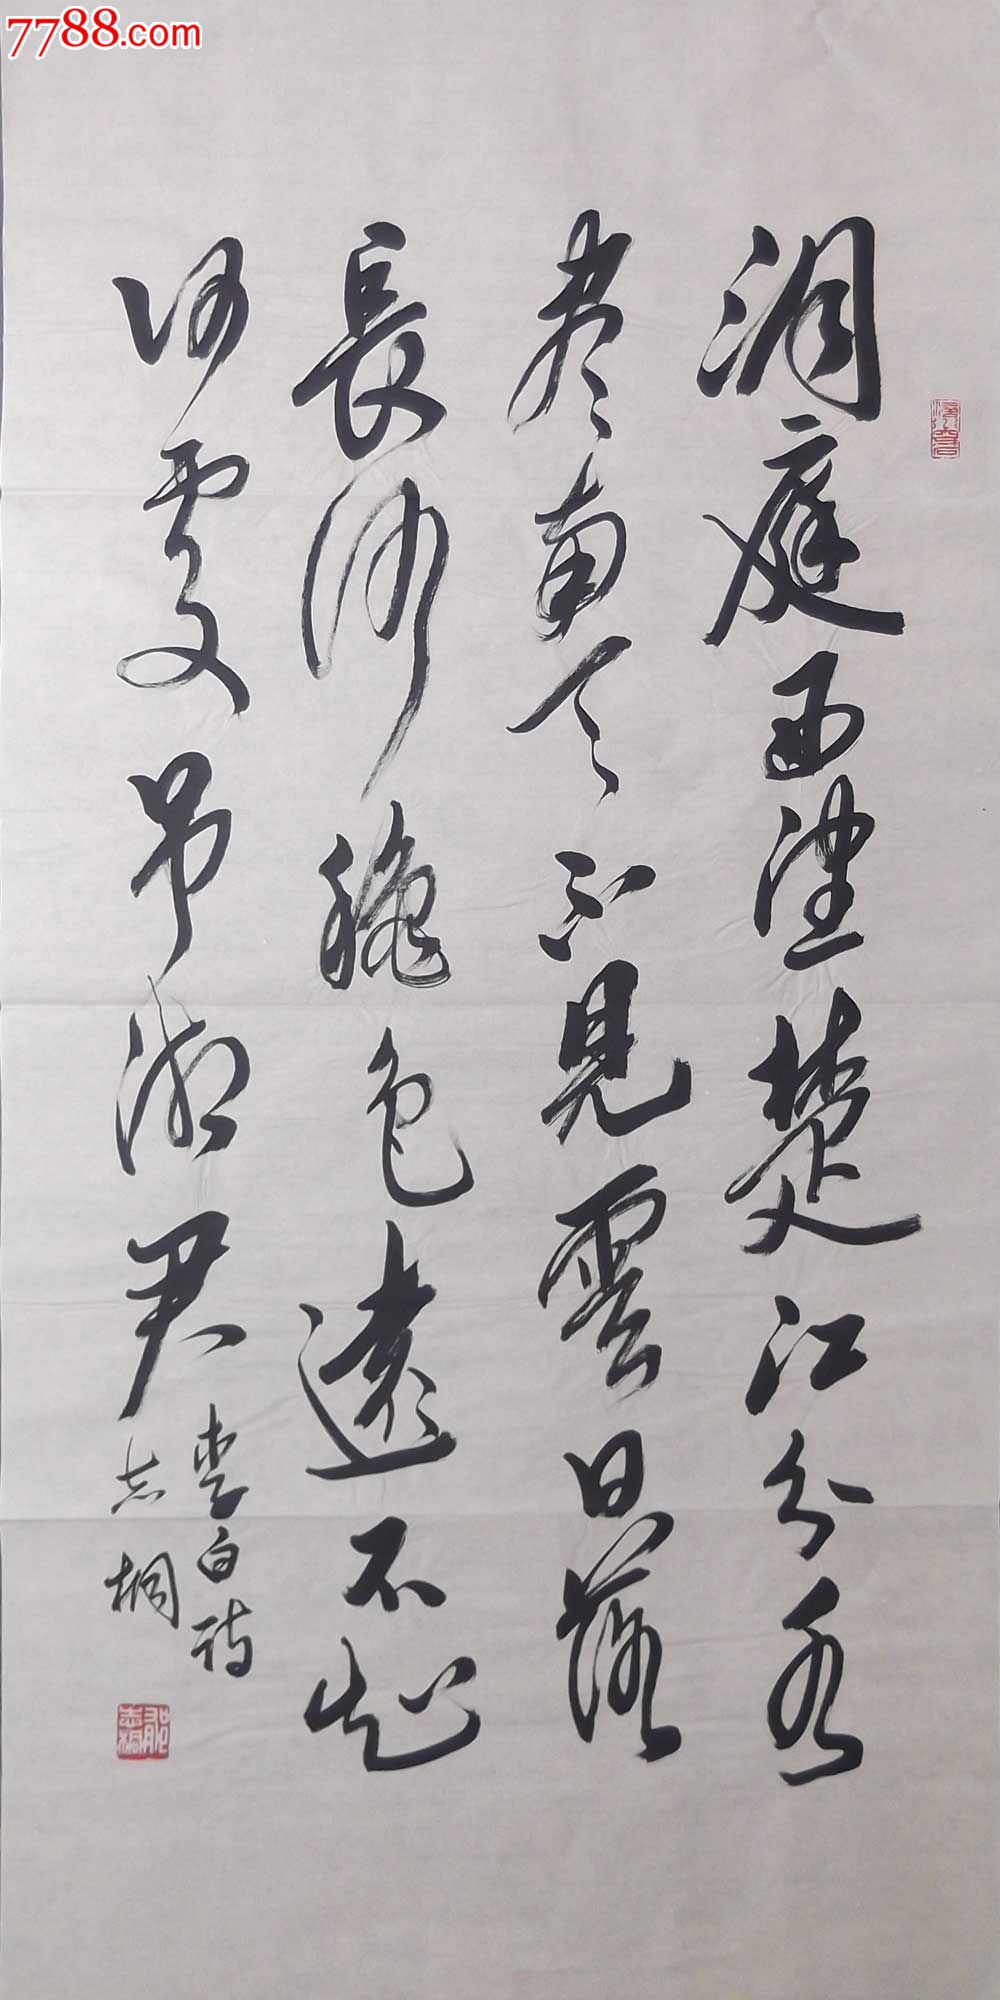 7788.com
洞庭西望楚江分水
尽南天不见雲日落
長沙穐色遠不知
何處吊湘君
李白詩
志桐